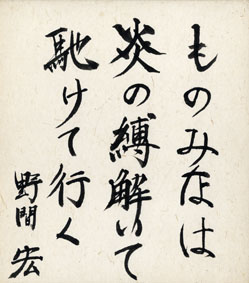 ものみなは
炎の縛解いて
馳けて行く
野間宏